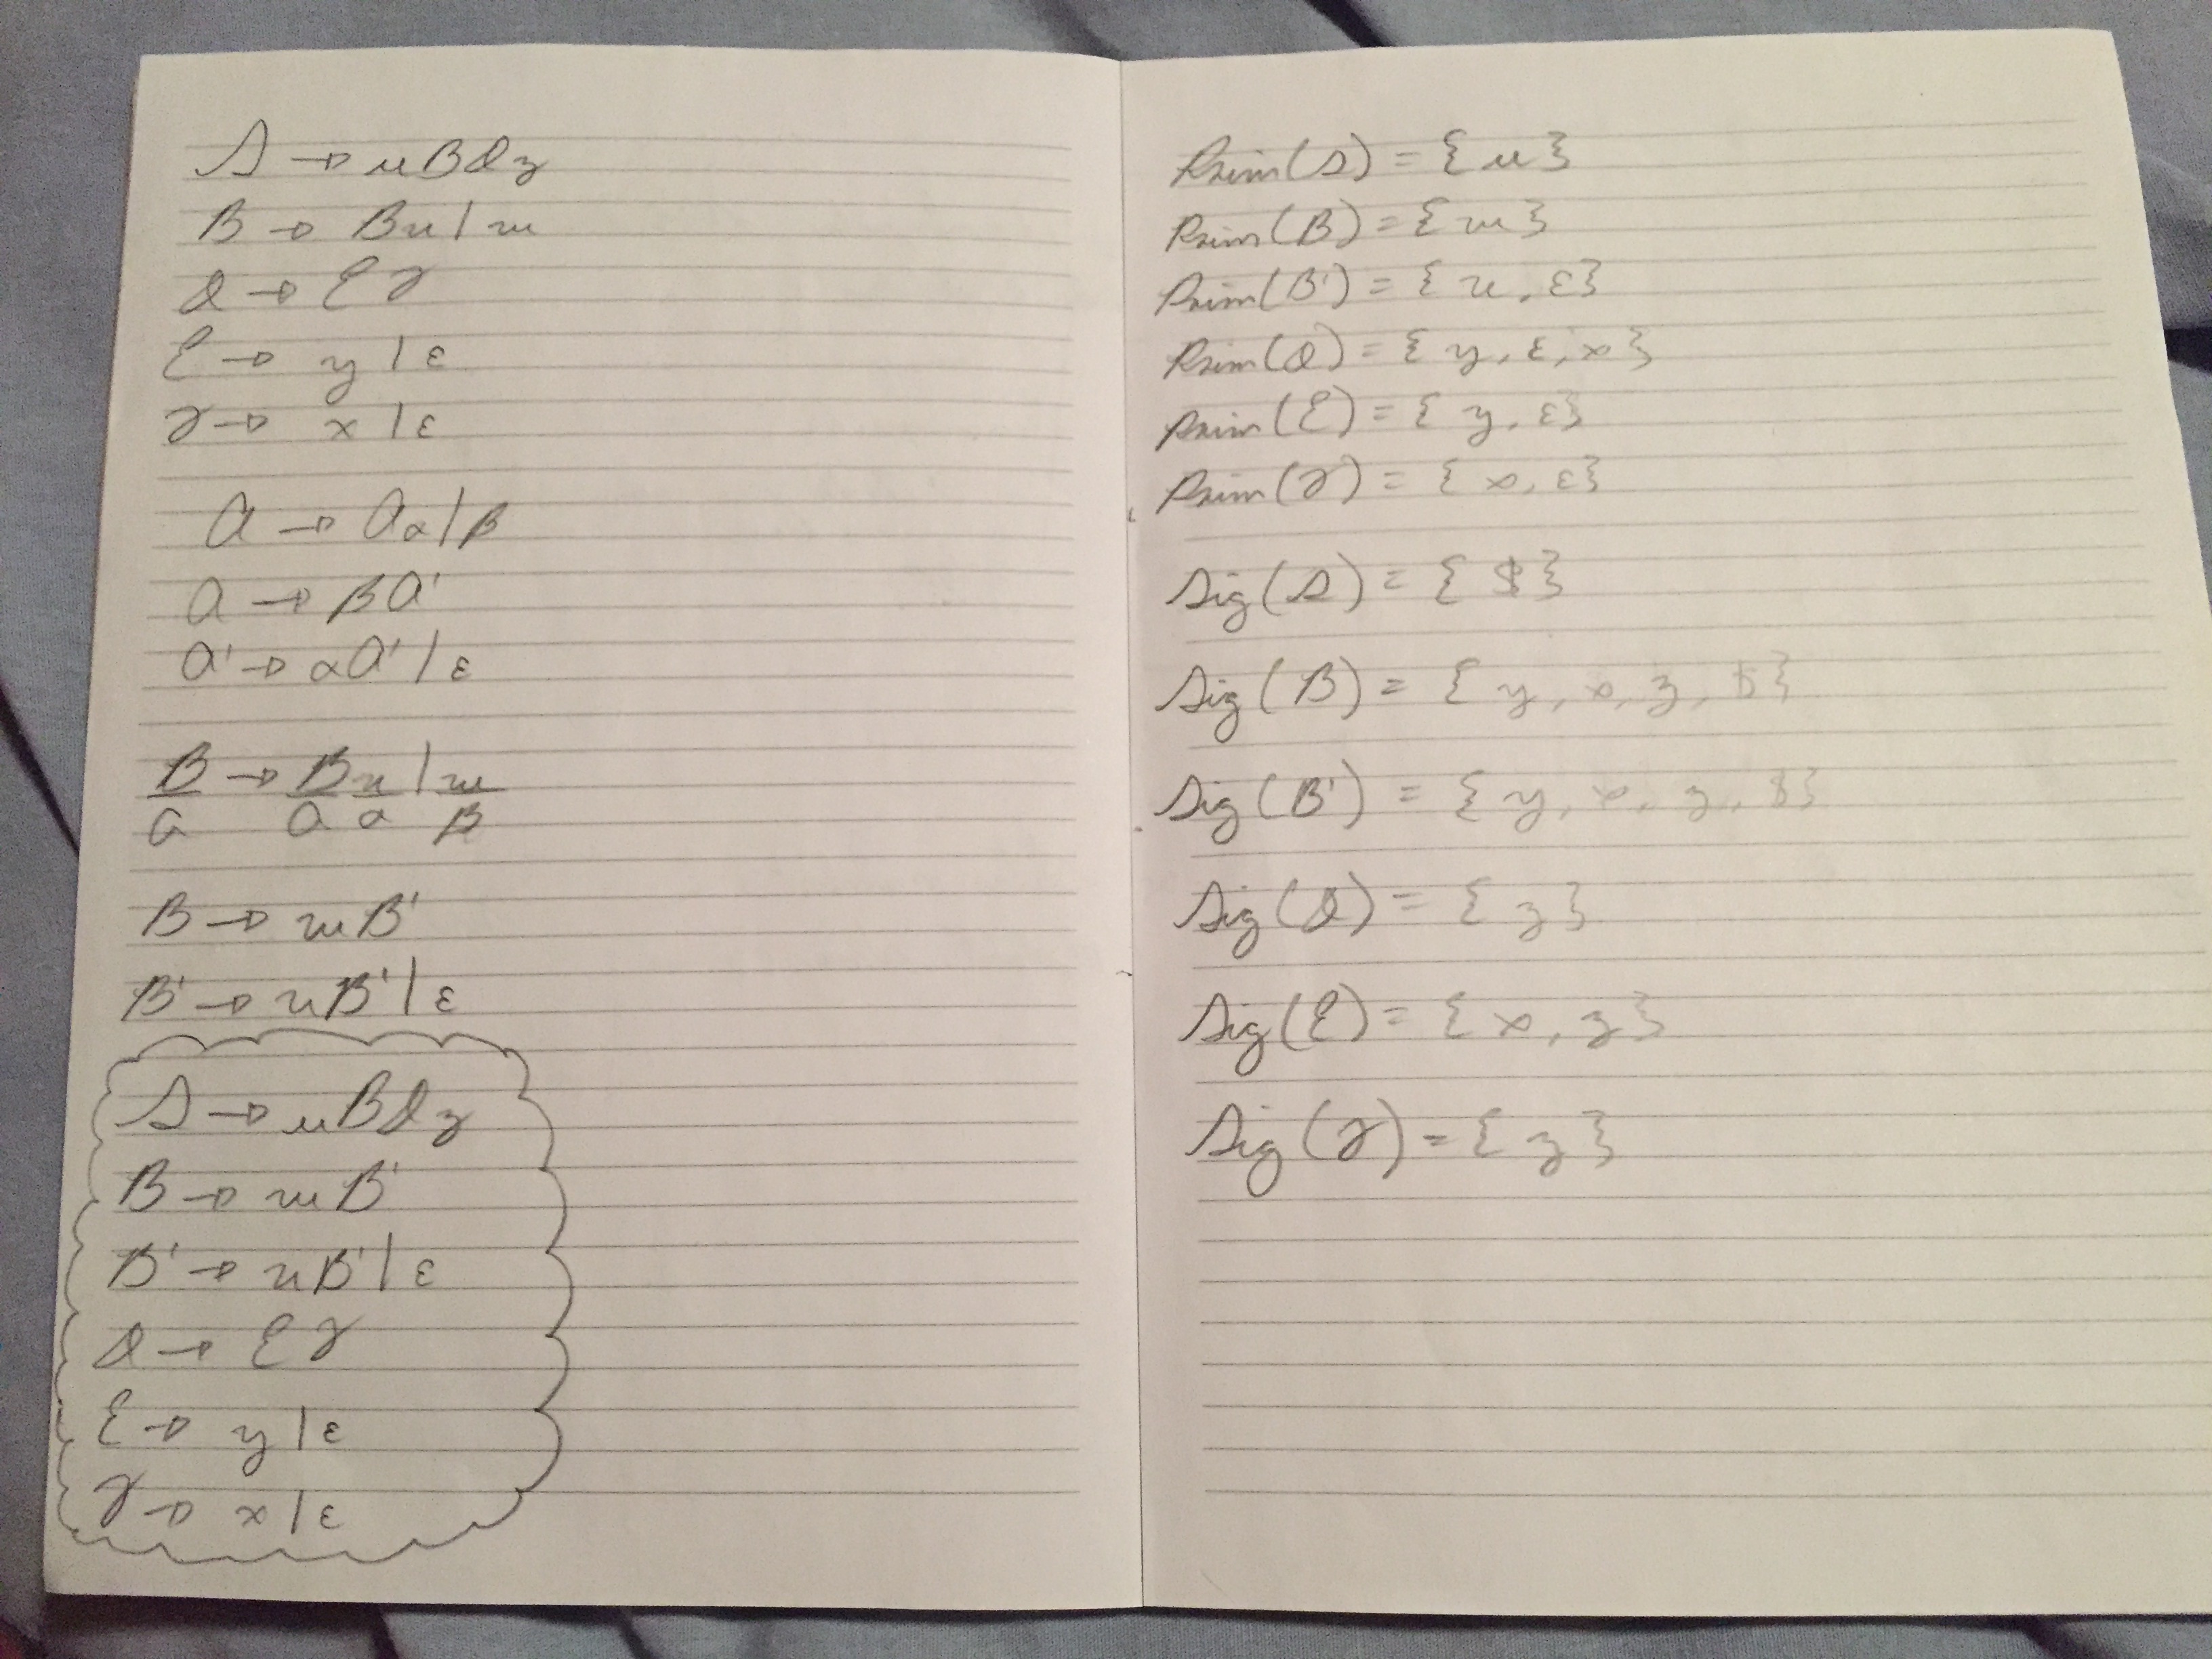 S → uBDz
B → Bv | w
D → EF
E → y | ε
F → x | ε
A → Aα | β
A → βA'
A' → αA' | ε
B → Bv | w
A A α β
B → wB'
B' → vB' | ε
S → uBDz
B → wB'
B' → vB' | ε
D → EF
E → y | ε
F → x | ε
Prim(S) = { u }
Prim(B) = { w }
Prim(B') = { v, ε }
Prim(D) = { y, ε, x }
Prim(E) = { y, ε }
Prim(F) = { x, ε }
Sig(S) = { $ }
Sig(B) = { y, x, z, $ }
Sig(B') = { y, x, z, $ }
Sig(D) = { z }
Sig(E) = { x, z }
Sig(F) = { z }